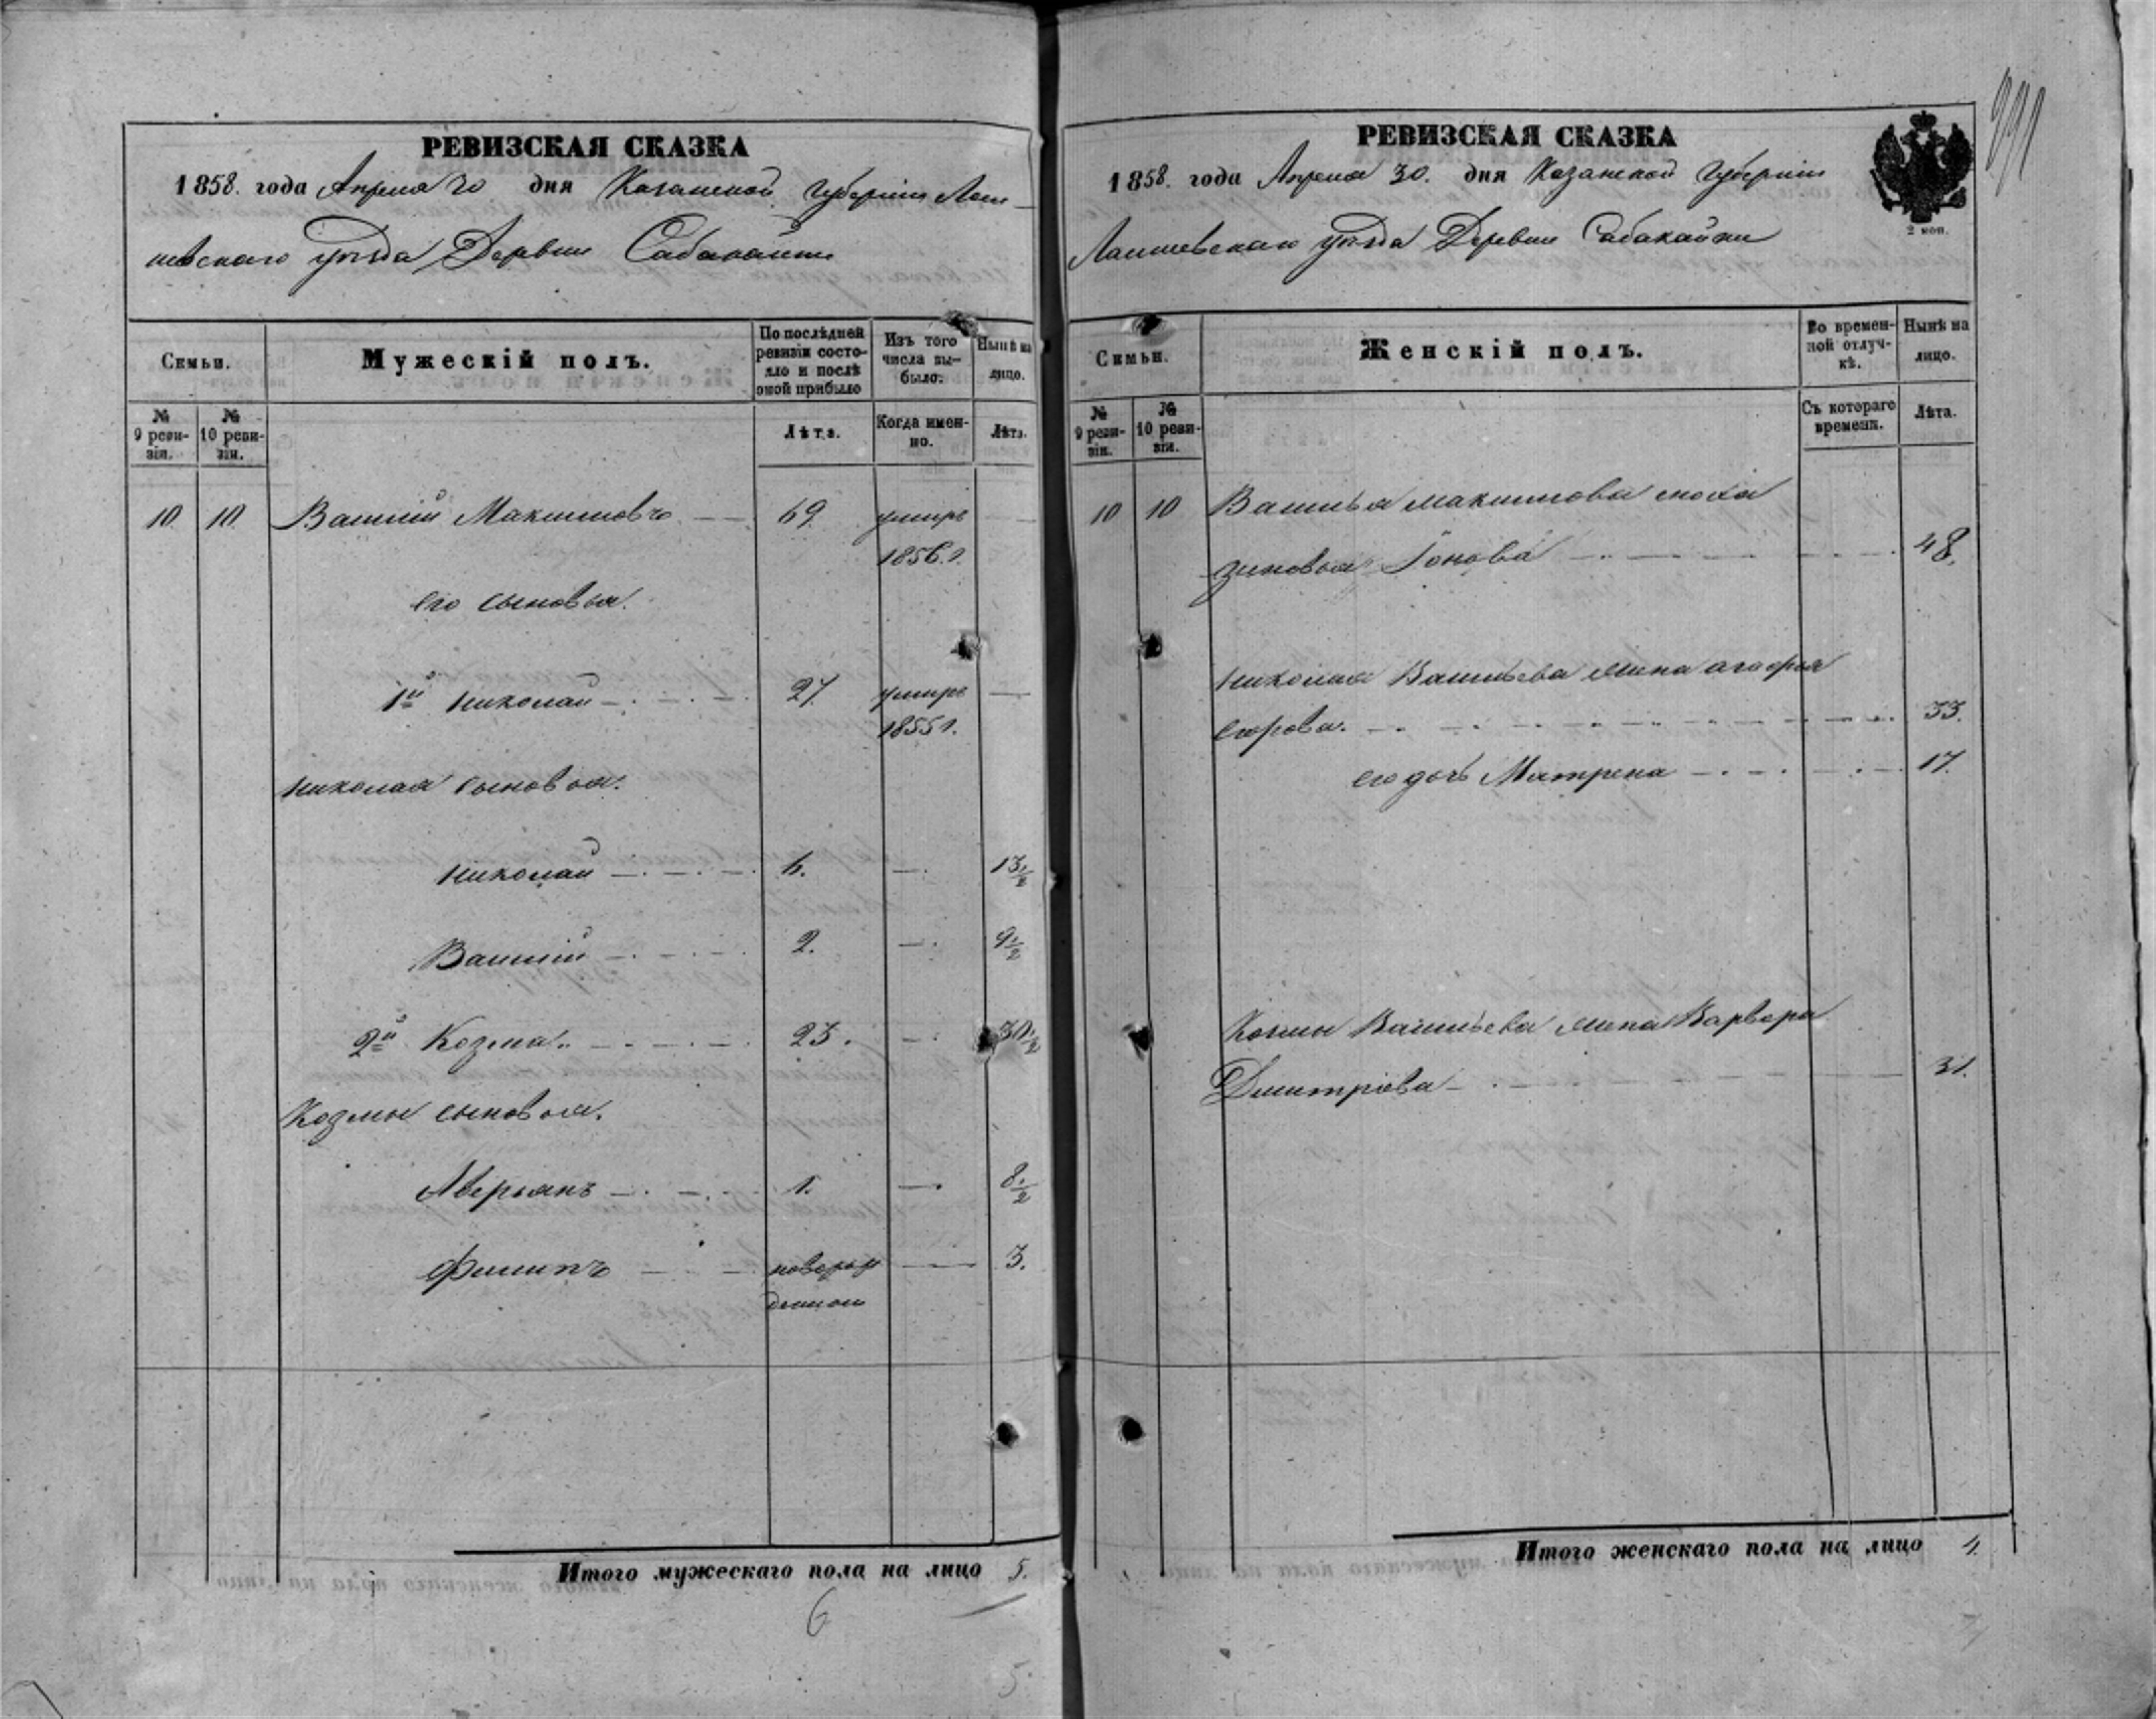 РЕВИЗСКАЯ СКАЗКА
1858. года Апреля 30 дня Казанской губернии Лаи-
шевскаго уѣзда Деревни Сабакайки
Семьи.
Мужескій полъ.
По послѣдней ревизіи состо-
яло и послѣ
оной прибыло
Изъ того
числа вы-
было.
Нынѣ на
лицо.
№
9 реви-
зіи.
№
10 реви-
зіи.
Лѣта.
Когда имен-
но.
Лѣта.
10. 10. Василій Максимовъ 69. умиръ
1856. г.
его сыновья.
1й Николай 27. умиръ
1855 г.
Николая сыновья.
Николай 6. 13 1/2
Василій 2. 9 1/2
2й Козма. 23. 30 1/2
Козмы сыновья.
Аверьянъ 1. 8 1/2
Филипъ новорож 3.
денной
Итого мужескаго пола на лицо 5.
6
5
РЕВИЗСКАЯ СКАЗКА
1858. года Апреля 30. дня Казанской губерніи
2 коп.
Лаишевскаго уѣзда Деревни Сабакайки
Семьи.
Женскій полъ.
Во времен-
ной отлуч-
кѣ.
Нынѣ на
лицо.
№
9 реви-
зіи.
№
10 реви-
зіи.
Съ котораго
времени.
Лѣта.
10 10 Василья Максимова сноха
зиновья Іонова 48.
Николая Васильева жина агафья
егорова. 33.
его дочь Матрена 17.
Козмы Васильева жина Варвара
Дмитріева 31.
Итого женскаго пола на лицо 4.